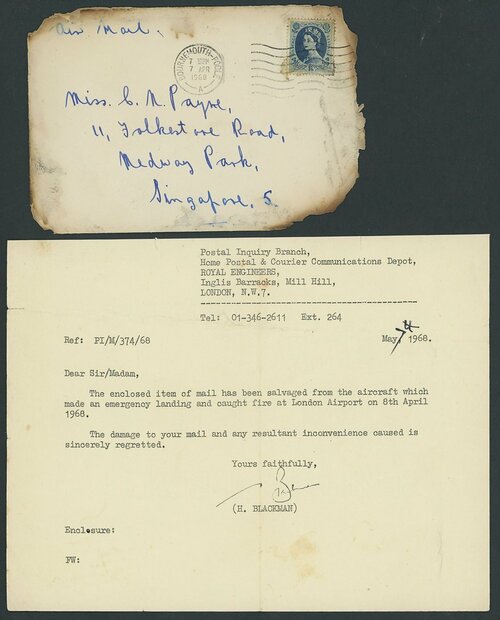 Air Mail.
BOURNEMOUTH-POOLE
7 APR
1968
A
Miss. C. N. Payne,
11, Folkestone Road,
Medway Park,
Singapore, 5.
Postal Inquiry Branch,
Home Postal & Courier Communications Depot,
ROYAL ENGINEERS,
Inglis Barracks, Mill Hill,
LONDON, N.W.7.
Tel: 01-346-2611 Ext. 264
Ref: PI/M/374/68 May, 1968.
Dear Sir/Madam,
The enclosed item of mail has been salvaged from the aircraft which
made an emergency landing and caught fire at London Airport on 8th April
1968.
The damage to your mail and any resultant inconvenience caused is
sincerely regretted.
Yours faithfully,
(H. BLACKMAN)
Enclosure:
FW: